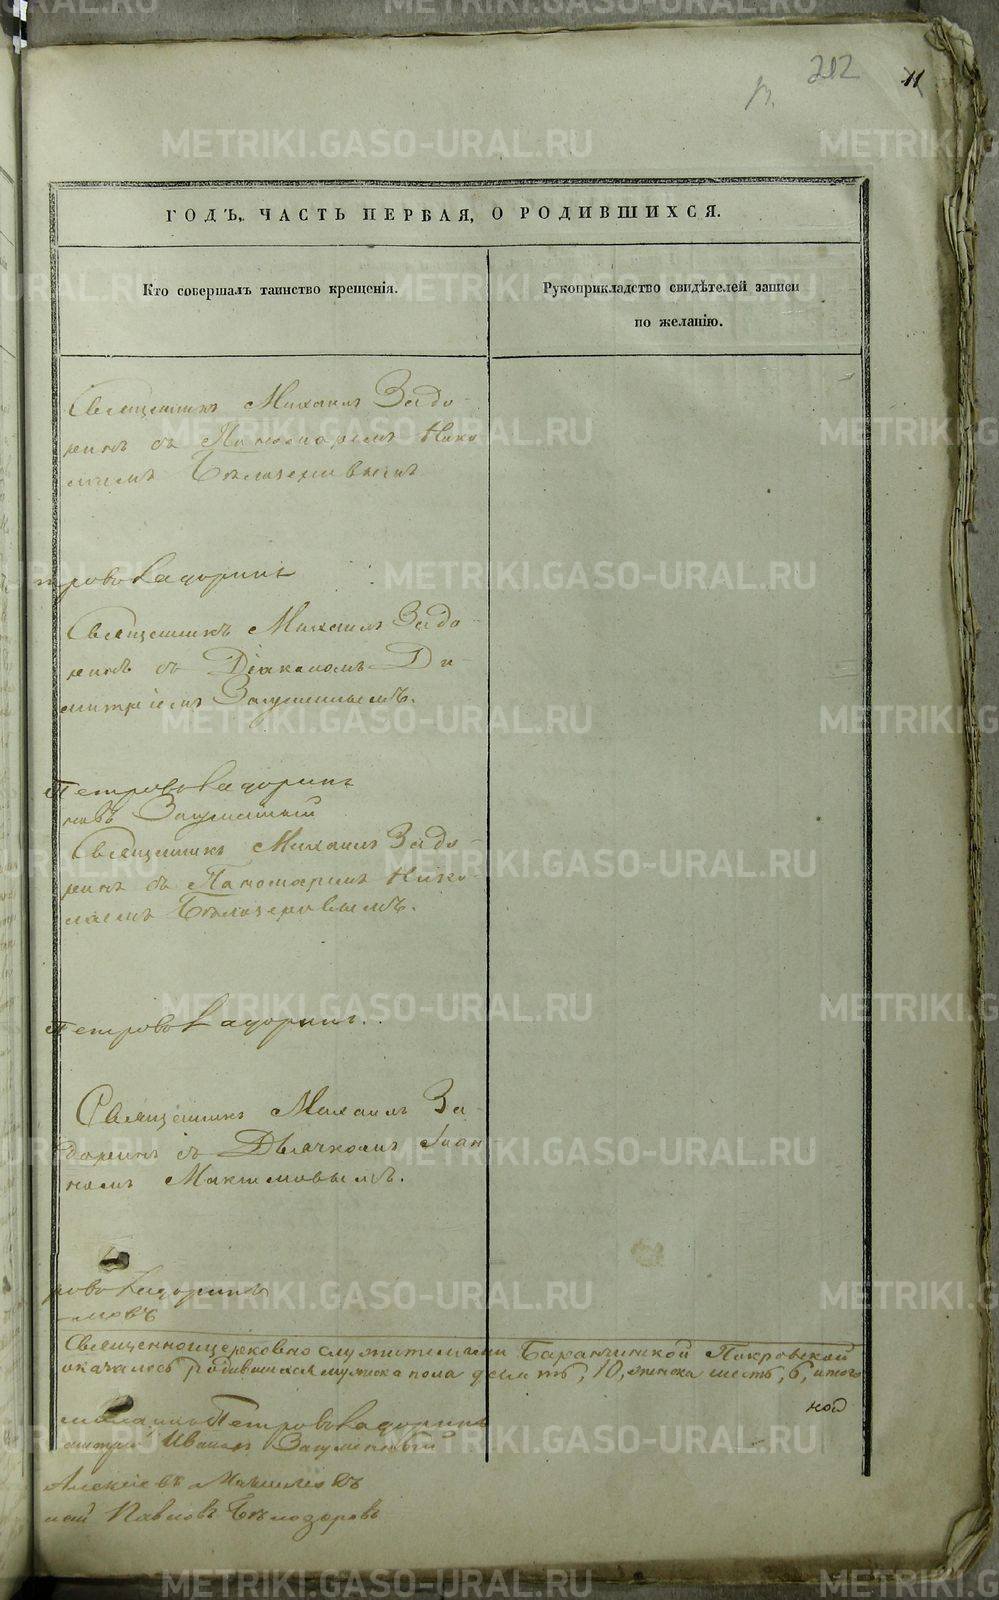 212
11
ГОДЪ, ЧАСТЬ ПЕРВАЯ, О РОДИВШИХСЯ.
Кто совершалъ таинство крещенія.
Рукоприкладство свидѣтелей записи
по желанію.
Священникъ Михаилъ Задо-
ринъ съ Пономаремъ Нико
лаемъ Бѣлозеровымъ
тровъ Задоринъ
Священникъ Михаилъ Задо-
ринъ съ Діакономъ Ди-
митріемъ
Петровъ Задоринъ
новъ
Священникъ Михаилъ Задо-
ринъ съ Пономаремъ Нико-
лаемъ Бѣлозеровымъ.
Петровъ Задоринъ.
Священникъ Михаилъ За-
доринъ съ Дьячкомъ Іоан
номъ Максимовымъ.
ровъ Задоринъ
мовъ
Священноцерковно служителями Баранчинской Покровской
оказалось родившихся мужска пола десять, 10, женска шесть, 6, итого
ной
Петровъ Задоринъ
Иванъ
Алексѣевъ Максимовъ
лай Павловъ Бѣлозеровъ
METRIKI.GASO-URAL.RU